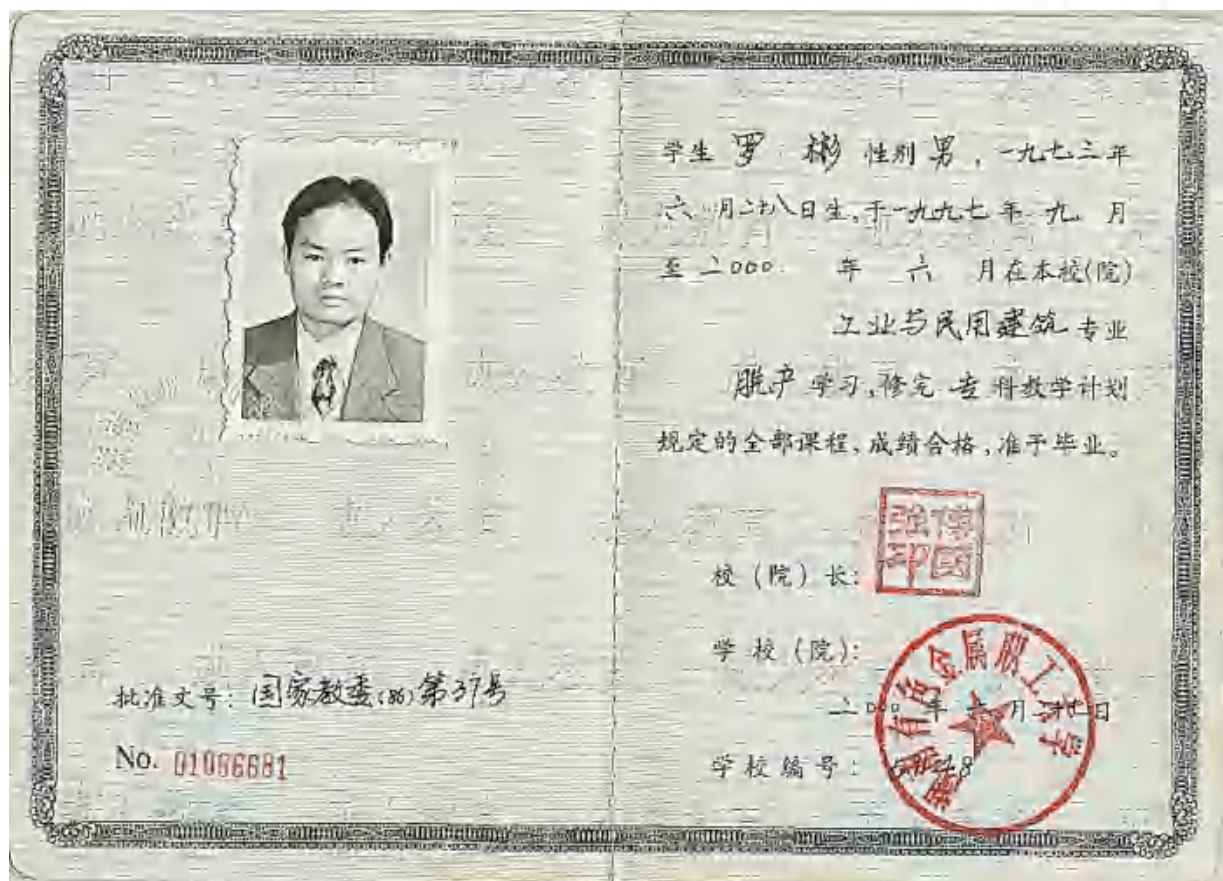 批准文号：国家教委(86)第37号
No. 01086681
学生 罗 彬 性别 男，一九七三年
六 月二十八日生，于一九九七 年 九 月
至 二000 年 六 月在本校(院)
工业与民用建筑 专业
脱产 学习，修完 专 科教学计划
规定的全部课程，成绩合格，准予毕业。
校（院）长：
学 校（院）：
湖南有色金属职工大学
二000 年 六 月 日
学 校 编 号：